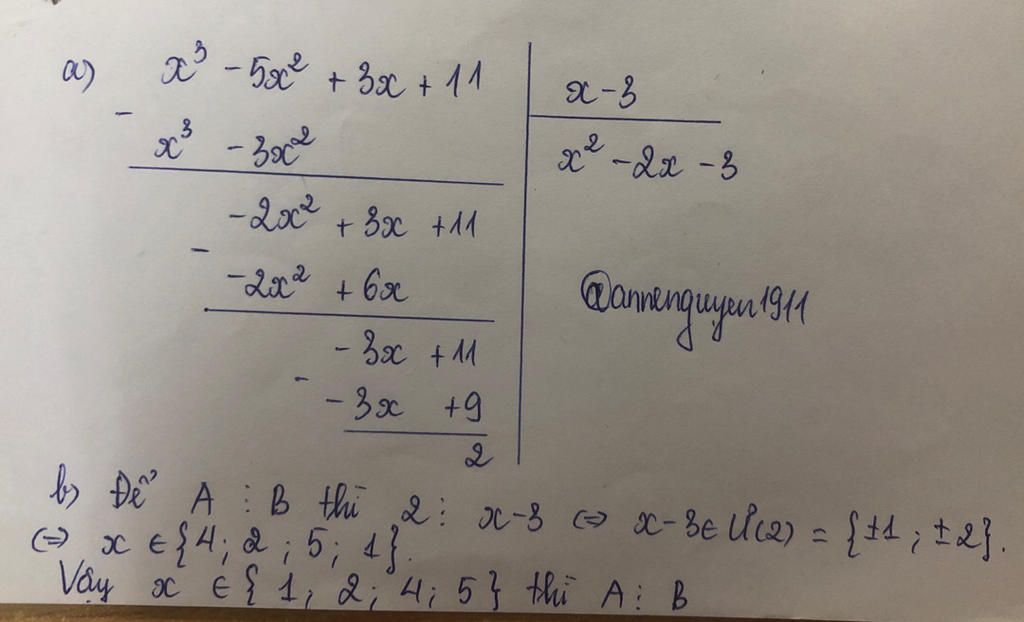 a) x³ - 5x² + 3x + 11
x - 3
-
x³ - 3x²
x² - 2x - 3
-2x² + 3x + 11
-
-2x² + 6x
@annenguyen1911
-3x + 11
-
-3x + 9
2
b) Để A ⋮ B thì 2 ⋮ x-3 ⇔ x-3 ∈ Ư(2) = {±1; ±2}.
⇔ x ∈ {4; 2; 5; 1}.
Vậy x ∈ {1; 2; 4; 5} thì A ⋮ B